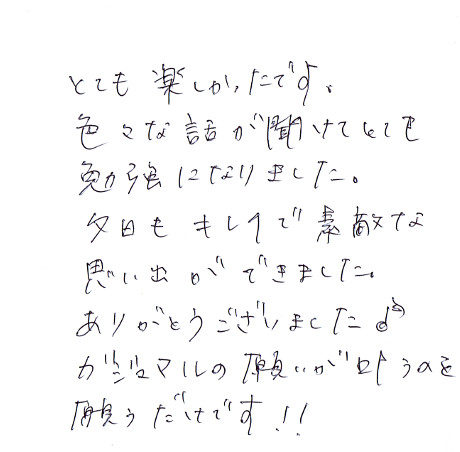 とても楽しかったです。
色々な話が聞けてとても
勉強になりました。
夕日もキレイで素敵な
思い出ができました。
ありがとうございました♪
ガジュマルの願いが叶うのを
願うだけです!!